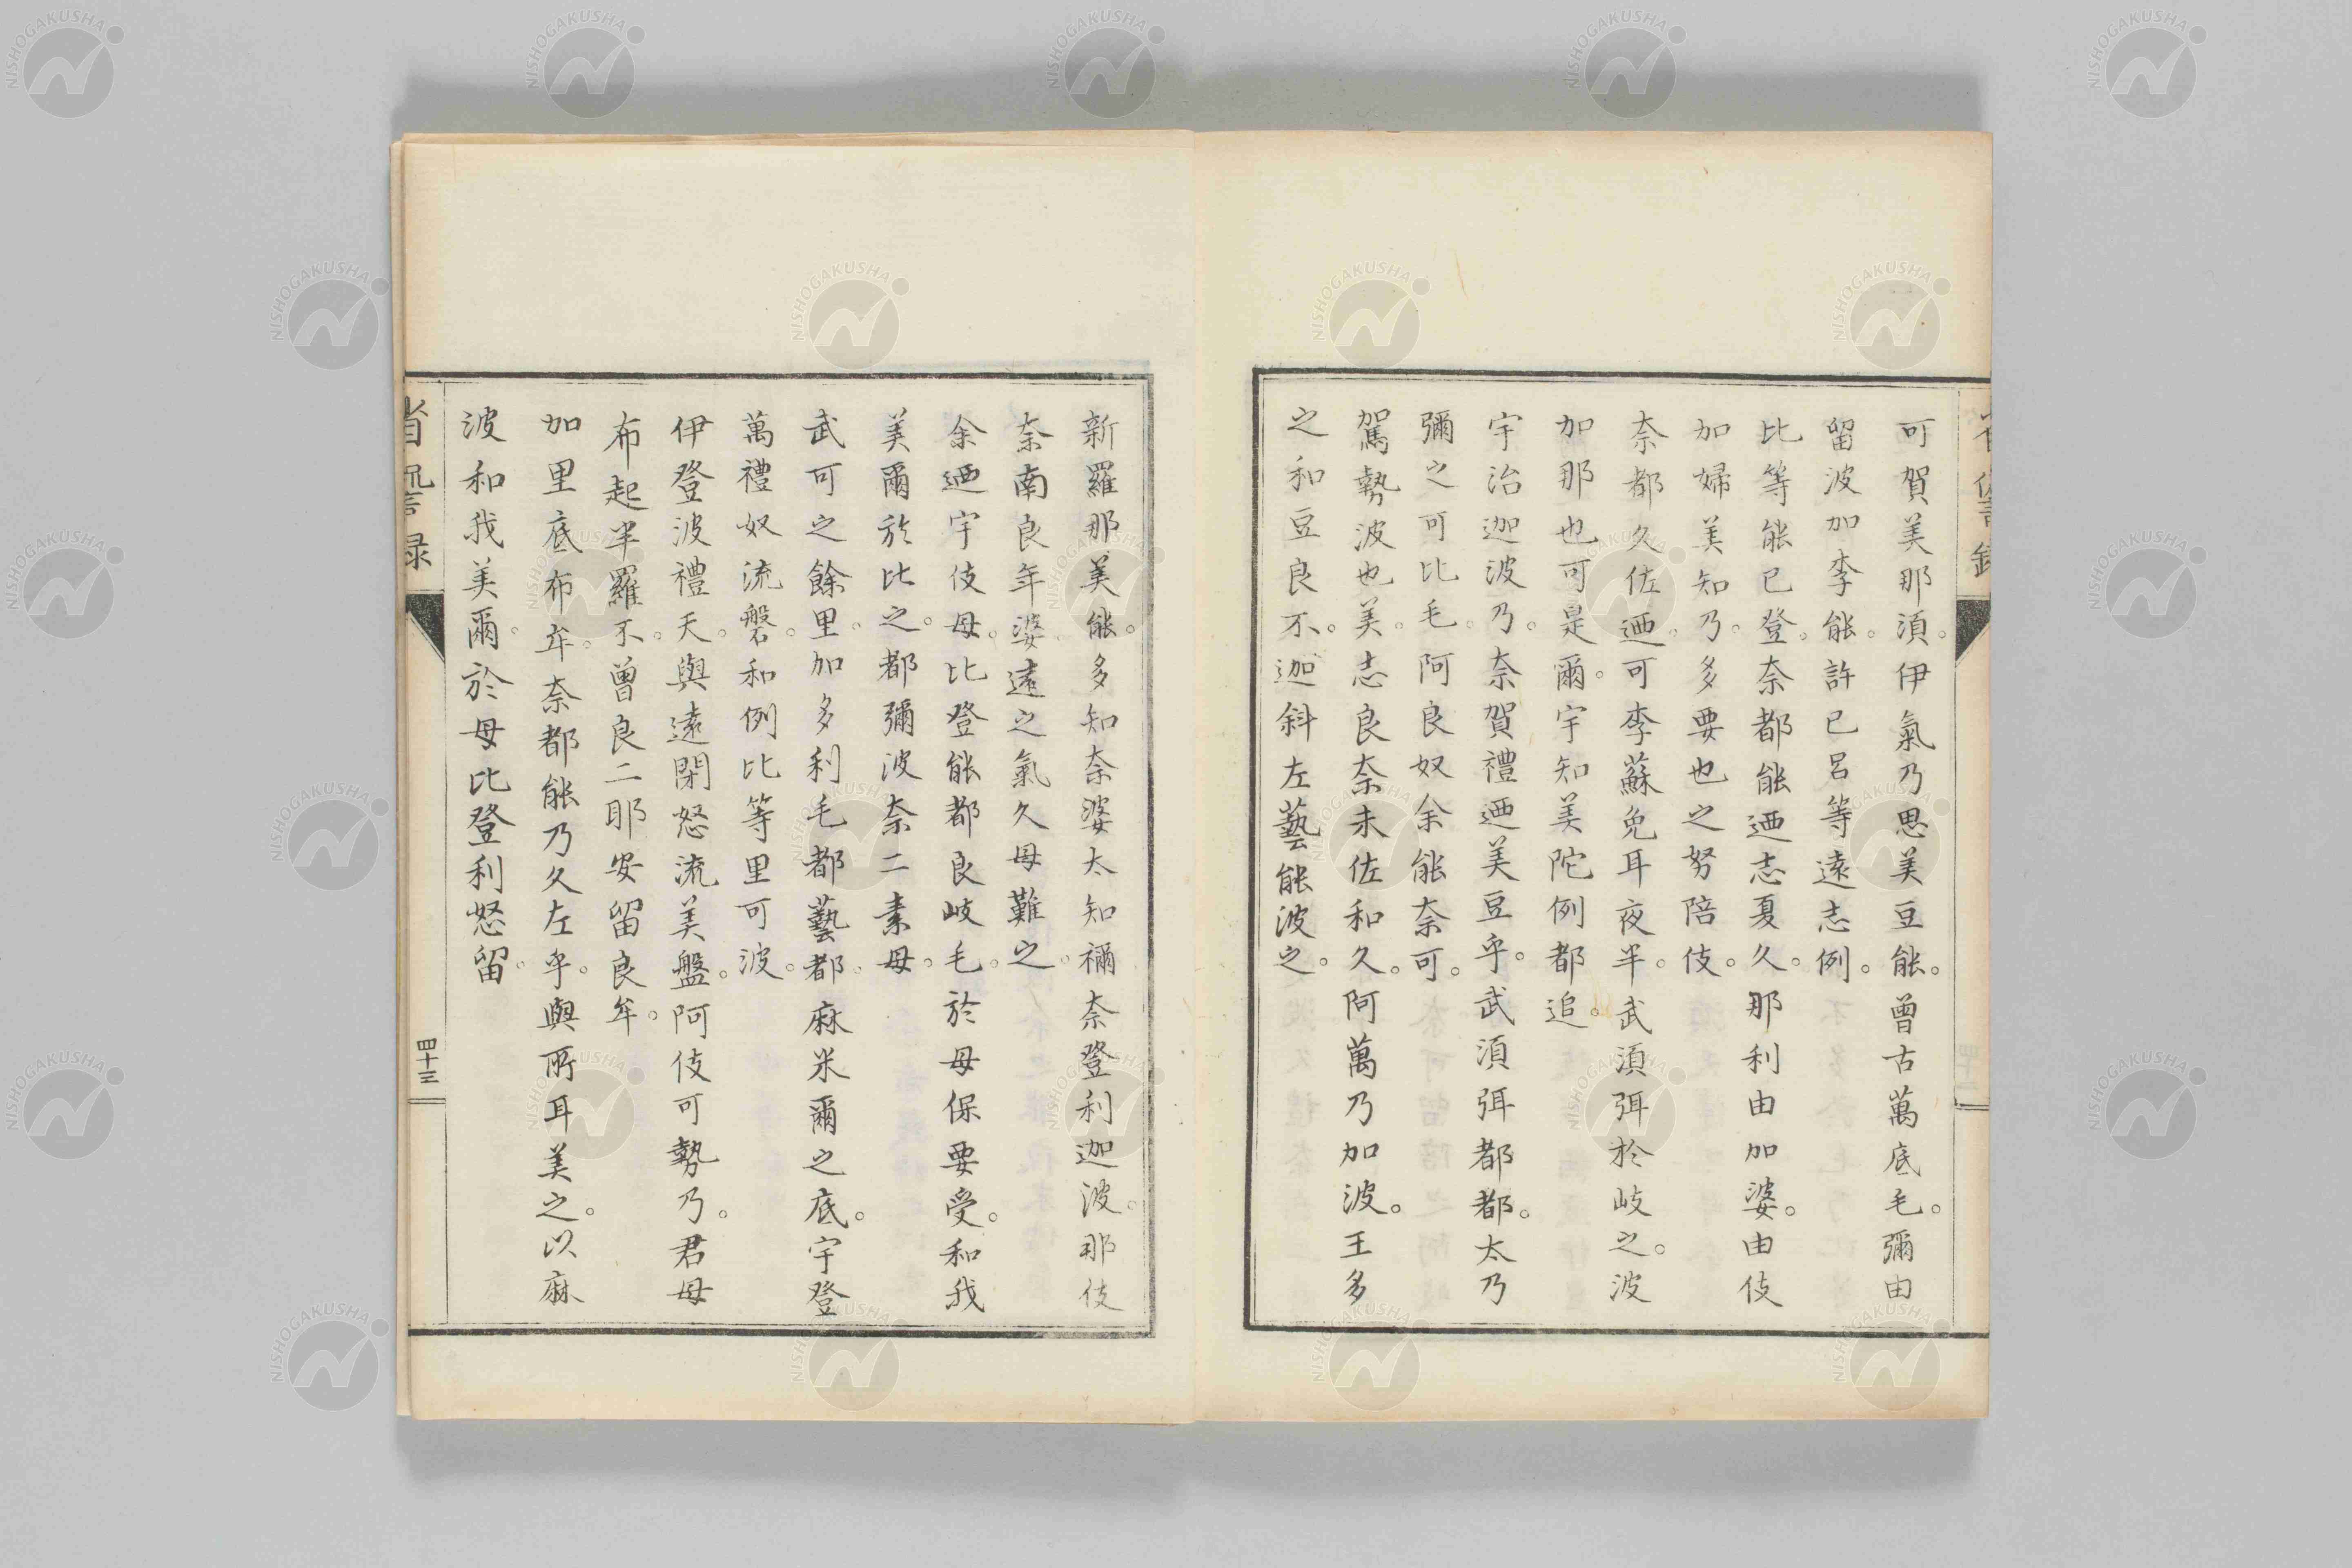 可賀美那須。伊氣乃思美豆能。曾古萬底毛。彌由
留波加李能。許已呂等遠志例。
比等能已登。奈都能迺志夏久。那利由加婆。由伎
加婦美知乃。多要也之努陪伎。
奈都久佐迺。可李蘇免耳夜半。武須弭於岐之。波
加那也可是爾。宇知美陀例都追。
宇治迦波乃。奈賀禮迺美豆乎。武須弭都都。太乃
彌之可比毛。阿良奴余能奈可。
駕勢波也美。志良奈未佐和久。阿萬乃加波。王多
之和豆良不。迦斜左藝能波之。
新羅那美能。多知奈婆太知禰奈登利迦波。那伎
奈南良年婆。遠之氣久母難之。
余迺宇伎母。比登能都良岐毛。於母保要受。和我
美爾於比之。都彌波奈二素母。
武可之餘里。加多利毛都藝都。麻米爾之底。宇登
萬禮奴流磐。和例比等里可波。
伊登波禮天。與遠閉怒流美盤。阿伎可勢乃。君母
布起半羅不。曾良二耶安留良牟。
加里底布年。奈都能乃久左乎。與所耳美之。以麻
波和我美爾。於母比登利怒留。
省諐録
四十三
NISHOGAKUSHA